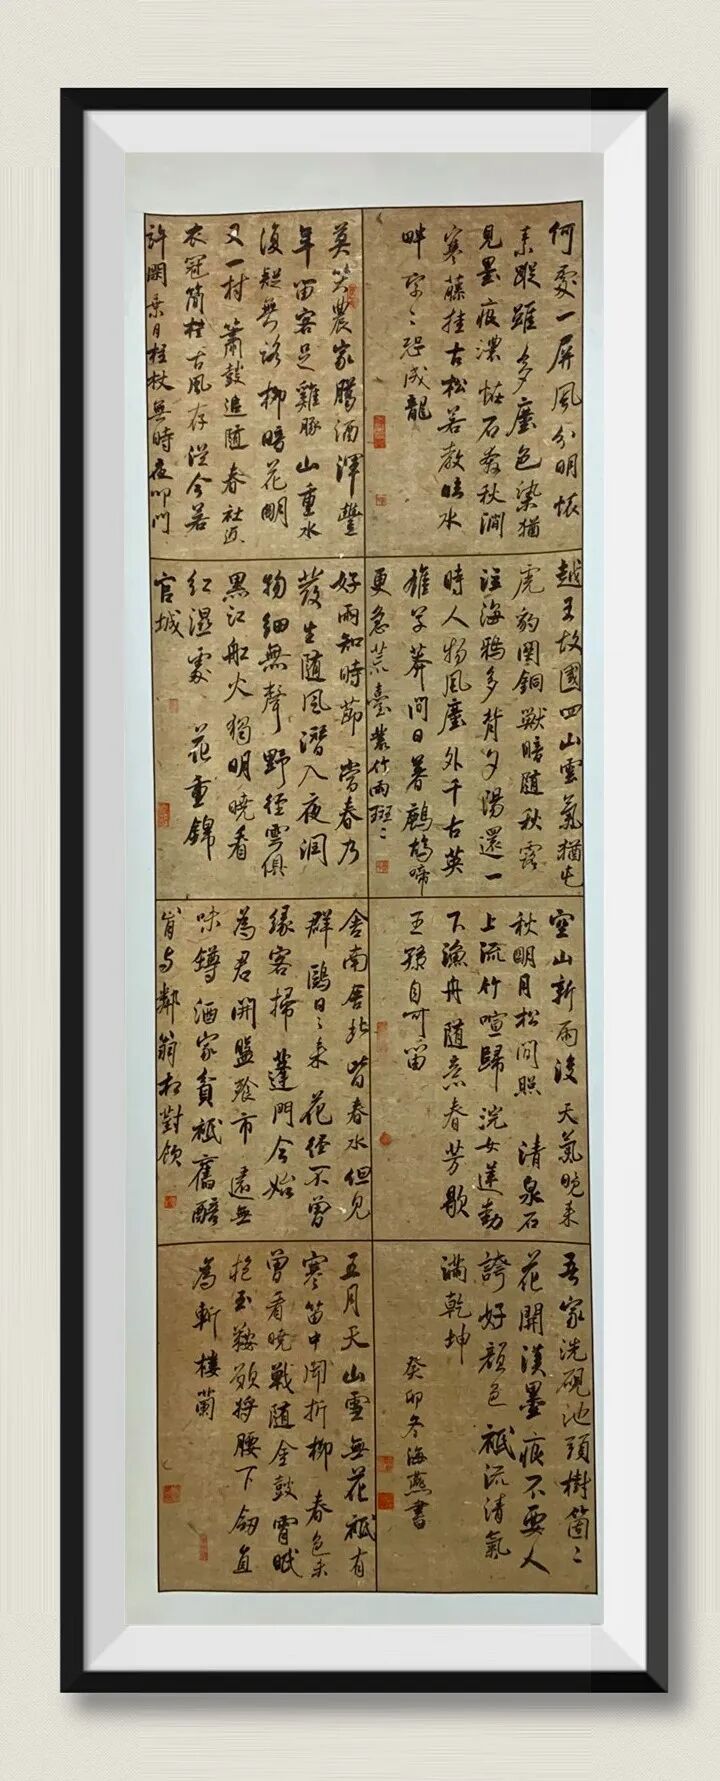 何處一屏風分明懷
素蹤雖多塵色染猶
見墨痕濃怪石奔秋澗
寒藤挂古松若教臨水
畔字〻恐成龍
莫笑農家臘酒渾豐
年留客足雞豚山重水
復疑無路柳暗花明
又一村簫鼓追隨春社近
衣冠簡樸古風存從今若
許閑乘月拄杖無時夜叩門
越王故國四山雲氣猶屯
虎豹関銅獸暗隨秋露
泣海鴉多背夕陽還一
時人物風塵外千古英
雄草莽間日暮鷓鴣啼
更急荒臺叢竹雨斑〻
好雨知時節當春乃
發生隨風潛入夜潤
物細無聲野徑雲俱
黑江船火獨明曉看
紅濕處花重錦
官城
空山新雨後天氣晚來
秋明月松間照清泉石
上流竹喧歸浣女蓮動
下漁舟隨意春芳歇
王孫自可留
舍南舍北皆春水但見
群鷗日〻來花徑不曾
緣客掃蓬門今始
為君開盤飧市遠無
味罇酒家貧祗舊醅
肯與鄰翁相對飲
吾家洗硯池頭樹箇〻
花開淡墨痕不要人
誇好顏色祗流清氣
滿乾坤
癸卯冬海燕書
五月天山雪無花祗有
寒笛中聞折柳春色未
曾看曉戰隨金鼓宵眠
抱玉鞍願將腰下劍直
為斬樓蘭